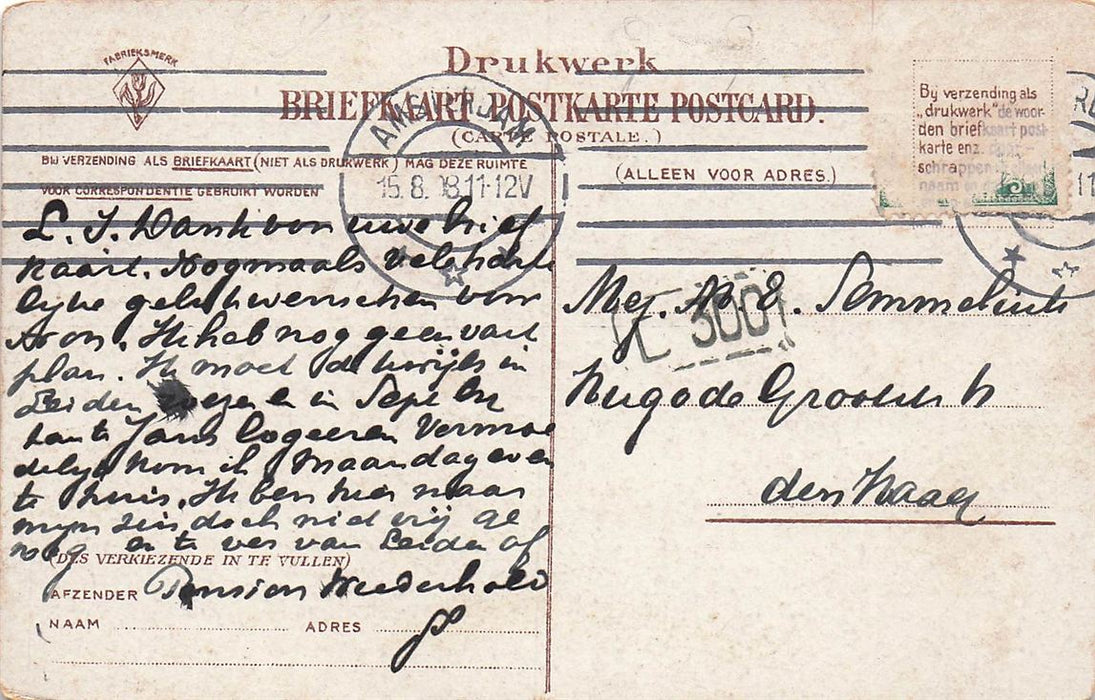 FABRIEKSMERK
Drukwerk
BRIEFKAART POSTKARTE POSTCARD.
(CARTE POSTALE.)
BIJ VERZENDING ALS BRIEFKAART (NIET ALS DRUKWERK) MAG DEZE RUIMTE
VOOR CORRESPONDENTIE GEBRUIKT WORDEN
(ALLEEN VOOR ADRES.)
By verzending als
„drukwerk" de woor-
den briefkaart post
karte enz. daar-
schrappen
naam en
AMSTERDAM
15.8.08.11-12V
11
L. J. Dank voor uwe brief
kaart. Nogmaals vele harte
lyke gelukwenschen voor
Aron. Ik heb nog geen vast
plan. Ik moet in
Leiden wezen en in Sept by
tante Jans logeeren Vermoe
delyk kom ik Maandag even
te huis. Ik ben hier naar
myn zin doch niet vrij ge
noeg en te ver van Leiden af
(DES VERKIEZENDE IN TE VULLEN)
AFZENDER Pension Wiederhold
NAAM ADRES
Mej. E. Semmelink
L 3001
Hugo de Grootstr
den Haag